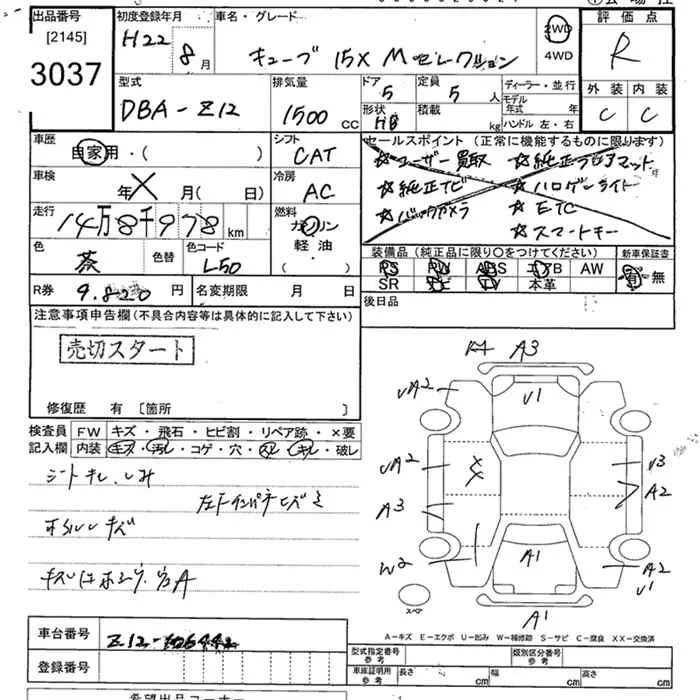 出品番号 初度登録年月 車名・グレード 評価点
[2145] H22 8月 キューブ 15X Mセレクション 2WD R
3037 4WD
外装 内装
C C
型式 排気量 ドア 定員 ディーラー・並行
DBA-Z12 1500 CC 5 5 人 モデル年式 年
形状 積載 ハンドル 左・右
HB kg
車歴 シフト セールスポイント(正常に機能するものに限ります)
自家用・( ) CAT ☆ユーザー買取 ☆純正フロアマット
車検 冷房 ☆純正ナビ ☆ハロゲンライト
年 月( 日) AC ☆バックカメラ ☆ETC
走行 燃料 ☆スマートキー
14万8千978 km ガソリン
軽油
( )
色 色替 色コード 装備品(純正品に限り○をつけてください) 新車保証書
茶 L50 PS PW ABS エアB AW 有・無
SR ナビ TV 本革
R券 9.820 円 名変期限 月 日 後日品
注意事項申告欄(不具合内容等は具体的に記入して下さい)
売切スタート
修復歴 有 [箇所 ]
検査員 FW キズ・飛石・ヒビ割・リペア跡・×要
記入欄 内装 キズ・汚レ・コゲ・穴・スレ・キレ・破レ
シートキレ、しみ
A3
UA2 U1
UA2 U3
A3 A2
W2 A1 A2
U1
スペア A1
A-キズ E-エクボ U-凹み W-補修跡 S-サビ C-腐食 XX-交換済
車台番号 Z12-
登録番号
型式指定番号 参考 類別区分番号 参考
車庫証明用 参考 長さ cm 幅 cm 高さ cm
希望出品コーナー